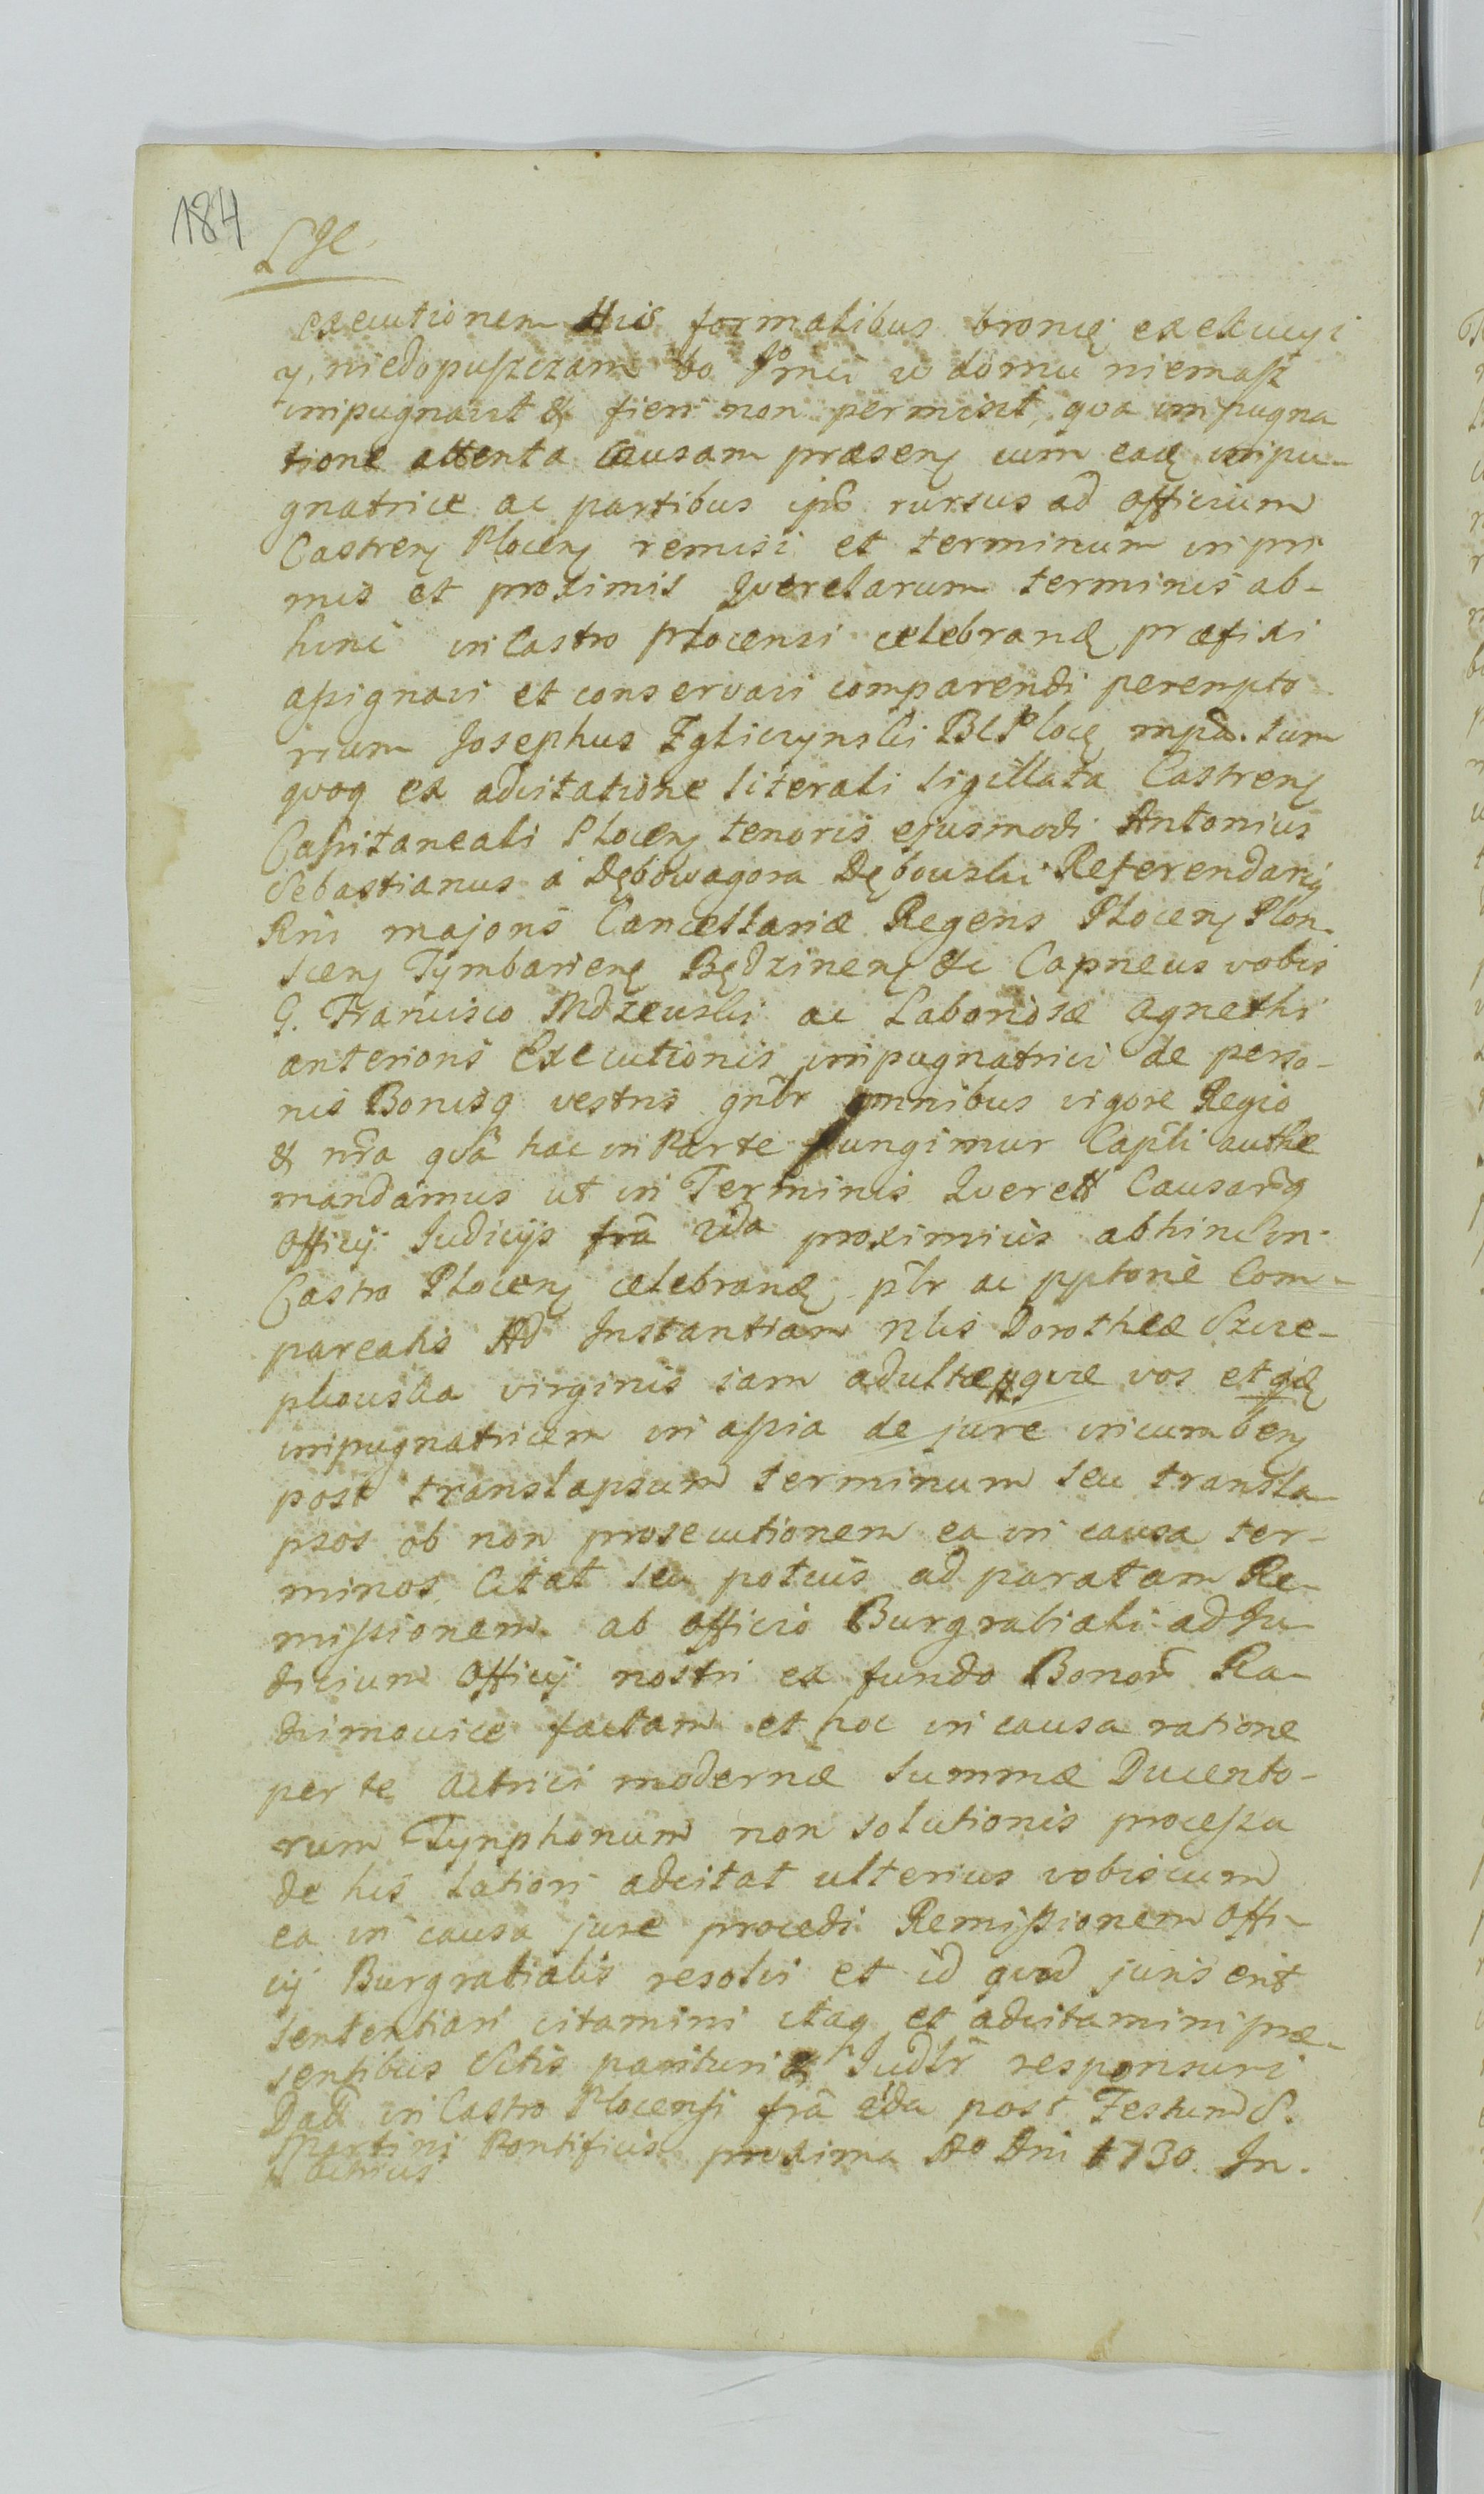 184
executionem His formalibus bronię exekucyi
y, niedopuszczam bo Jomci w domu niemasz
impugnavit & fieri non permisit, qva impugna
tione attenta Causam præsenȝ cum eadę impu-
gnatrice ac partibus ips̃ rursus ad officium
Castrenȝ Plocenȝ remisi et terminum in pri
mis et proximis Qverelarum terminis ab-
hinc in Castro Plocensi celebrandę præfixi
assignavi et conservavi comparendi perempto
rium Josephus Zglicynski BC Plocę mpã. tum
qvoq ex adcitatione literali sigillata Castrenȝ
Capitaneali Plocenȝ tenoris ejusmodi Antonius
Sebastianus á Dębowagora Dębowski Referendariȝ
Rni majoris Cancellariæ Regens Plocenȝ Plon
scenȝ Tymbarienȝ Będzinenȝ &c Capneus vobis
G. Francisco Mdzewski ac Laboriosæ Agnethi
anterioris Executionis impugnatrici de perso-
nis Bonisq vestris gnĩbr omnibus vigore Regio
& nr̃a qvâ hac in Parte fungimur Capl̃i authæ
mandamus ut in Terminis Qverell Causarq̃
Officij Judicijs fr̃a 2da proximius abhinc in
Castro Plocenȝ celebrandę pl̃r ac pptoriè Com-
pareatis Ad Instantiam Nlis Dorotheæ Szcze-
pkowska virginis iam adultæ qvæ vos et qę
impugnatricem in assia de jure incumbenȝ
post translapsum terminum seu transla-
psos ob non prosecutionem ea in causa ter-
minos Citat seu potius ad paratam Re-
missionem ab officio Burgrabiali ad Ju-
dicium Officij nostri ex fundo Bonor̃ Ra-
dzimowice factam et hoc in causa ratione
per te Actrici modernæ Summæ Ducento-
rum Tynphonum non solutionis processu
de his latiori adcitat ulterius vobiscum
ea in causa jure procedi Remissionem Offi-
cij Burgrabialis resolvi et id qvod juris erit
sententiari citamini itaq et adcitamini præ-
sentibus Sitis parituri & Judlr̃ responsuri
Datt in Castro Plocensi fr̃a 2da post Festum S.
Martini Pontificis proxima Ao Dni 1730. In.